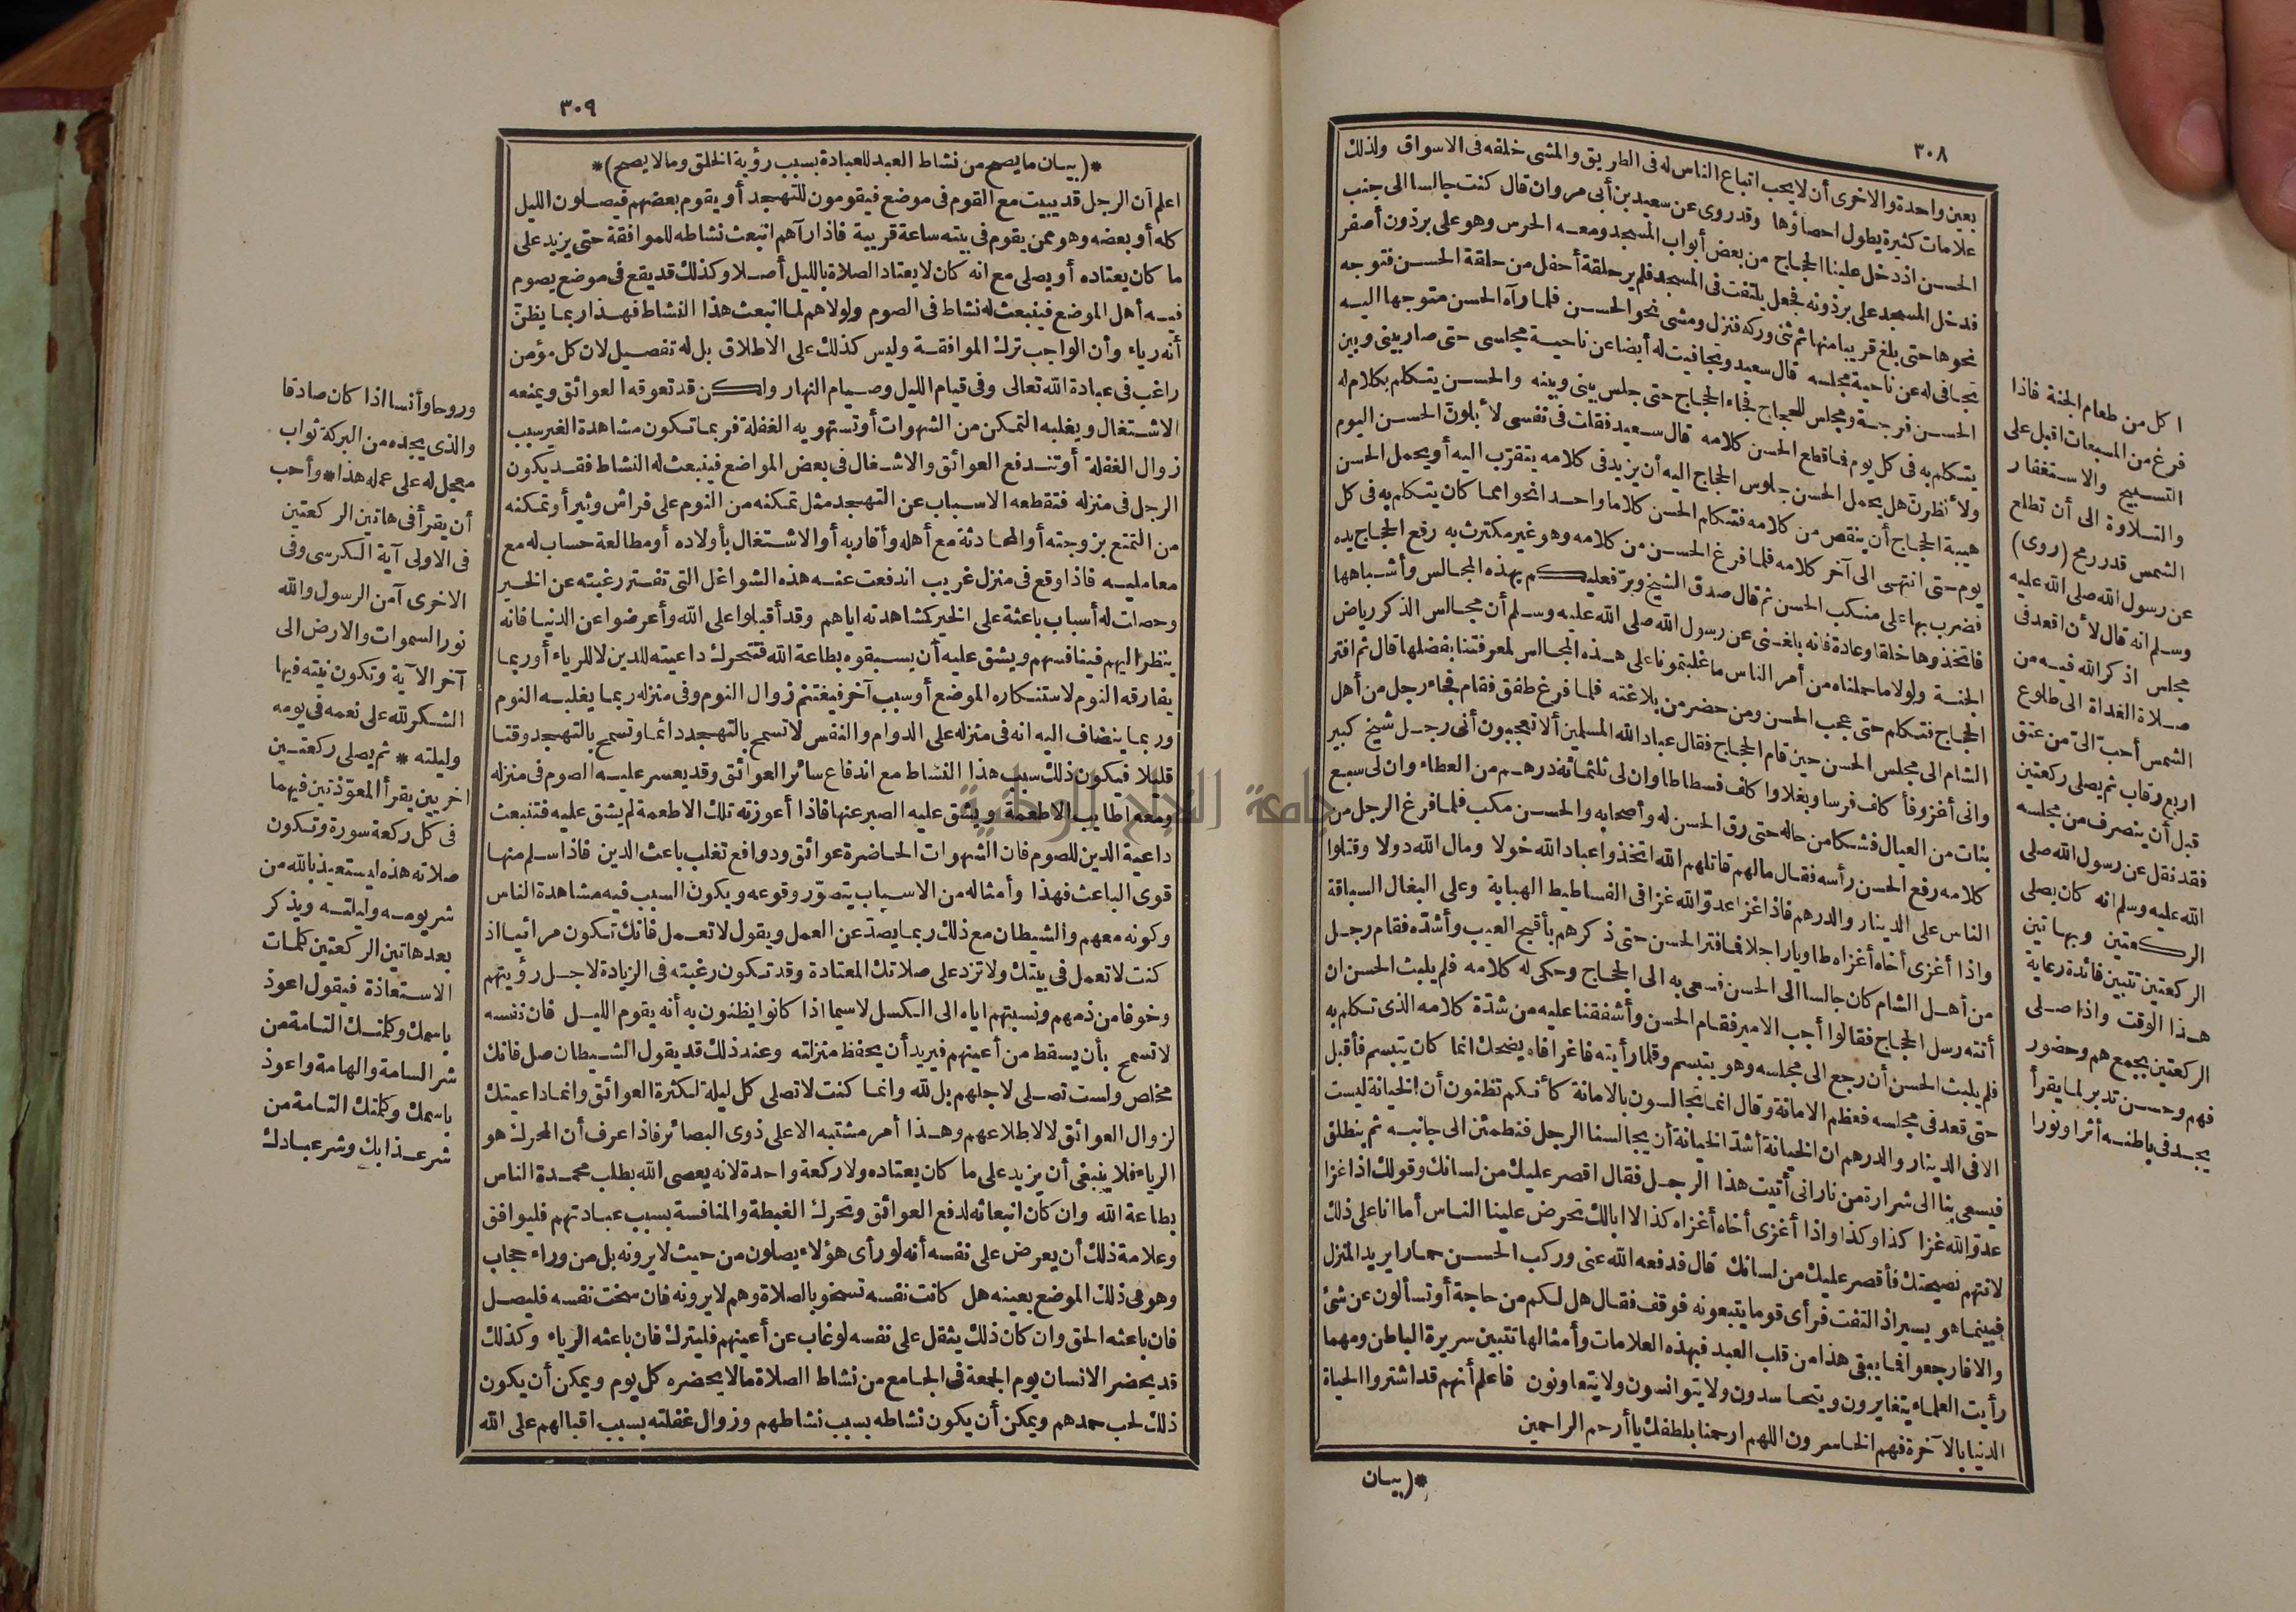 ٣٠٨
بعين واحدة والاخرى أن لا يحب اتباع الناس له فى الطريق والمشى خلفه فى الاسواق ولذلك
علامات كثيرة يطول احصاؤها وقد روى عن سعيد بن أبى مروان قال كنت جالسا الى جنب
الحسن اذ دخل علينا الحجاج من بعض أبواب المسجد ومعه الحرس وهو على برذون أصفر
فدخل المسجد على برذونه فجعل يلتفت فى المسجد فلم ير حلقة أحفل من حلقة الحسن فتوجه
نحوها حتى بلغ قريبا منها ثم ثنى وركه فنزل ومشى نحو الحسن فلما رآه الحسن متوجها اليه
تجافى له عن ناحية مجلسه قال سعيد وتجافيت له أيضا عن ناحية مجلسى حتى صار بينى وبين
الحسن فرجة ومجلس للحجاج فجاء الحجاج حتى جلس بينى وبينه والحسن يتكلم بكلام له
يتكلم به فى كل يوم فما قطع الحسن كلامه قال سعيد فقلت فى نفسى لأبلون الحسن اليوم
ولأنظرن هل يحمل الحسن جلوس الحجاج اليه أن يزيد فى كلامه يتقرب اليه أو يحمل الحسن
هيبة الحجاج أن ينقص من كلامه فتكلم الحسن كلاما واحدا نحوا مما كان يتكلم به فى كل
يوم حتى انتهى الى آخر كلامه فلما فرغ الحسن من كلامه وهو غير مكترث به رفع الحجاج يده
فضرب بها على منكب الحسن ثم قال صدق الشيخ وبرّ فعليكم بهذه المجالس وأشباهها
فاتخذوها خلقا وعادة فانه بلغنى عن رسول الله صلى الله عليه وسلم أن مجالس الذكر رياض
الجنة ولولا ما حملناه من أمر الناس ما غلبتمونا على هذه المجالس لمعرفتنا بفضلها قال ثم افتر
الحجاج فتكلم حتى عجب الحسن ومن حضر من بلاغته فلما فرغ طفق فقام فجاء رجل من أهل
الشام الى مجلس الحسن حين قام الحجاج فقال عباد الله المسلمين ألا تعجبون أنى رجل شيخ كبير
وانى أغزو فأكلف فرسا وبغلا وأكلف فسطاطا وان لى ثلثمائة درهم من العطاء وان لى سبع
بنات من العيال فشكا من حاله حتى رق الحسن له وأصحابه والحسن مكب فلما فرغ الرجل من
كلامه رفع الحسن رأسه فقال ما لهم قاتلهم الله اتخذوا عباد الله خولا ومال الله دولا وقتلوا
الناس على الدينار والدرهم فاذا غزا عدوّ الله غزا فى الفساطيط الهبابة وعلى البغال السباقة
واذا أغزى أخاه أغزاه طاويا راجلا فما فتر الحسن حتى ذكرهم بأقبح العيب وأشدّه فقام رجل
من أهل الشام كان جالسا الى الحسن فسعى به الى الحجاج وحكى له كلامه فلم يلبث الحسن ان
أتته رسل الحجاج فقالوا أجب الامير فقام الحسن وأشفقنا عليه من شدّة كلامه الذى تكلم به
فلم يلبث الحسن أن رجع الى مجلسه وهو يتبسم وقلما رأيته فاغرا فاه يضحك انما كان يتبسم فأقبل
حتى قعد فى مجلسه فعظم الامانة وقال انما تجالسون بالامانة كأنكم تظنون أن الخيانة ليست
الا فى الدينار والدرهم ان الخيانة أشدّ الخيانة أن يجالسنا الرجل فنطمئن الى جانبه ثم ينطلق
فيسعى بنا الى شرارة من نار انى أتيت هذا الرجل فقال اقصر عليك من لسانك وقولك اذا غزا
عدوّ الله غزا كذا وكذا واذا أغزى أخاه أغزاه كذا لا ابالك تحرض علينا الناس أما انا على ذلك
لا نتهم نصيحتك فأقصر عليك من لسانك قال فدفعه الله عنى وركب الحسن حمارا يريد المنزل
فبينما هو يسير اذ التفت فرأى قوما يتبعونه فوقف فقال هل لكم من حاجة أو تسألون عن شئ
والا فارجعوا فما يبقى هذا من قلب العبد فبهذه العلامات وأمثالها تتبين سريرة الباطن ومهما
رأيت العلماء يتغايرون ويتحاسدون ولا يتوانسون ولا يتعاونون فاعلم أنهم قد اشتروا الحياة
الدنيا بالآخرة فهم الخاسرون اللهم ارحمنا بلطفك يا أرحم الراحمين
*(بيان
اكل من طعام الجنة فاذا
فرغ من المسبعات اقبل على
التسبيح والاستغفار
والتلاوة الى أن تطلع
الشمس قدر رمح (روى)
عن رسول الله صلى الله عليه
وسلم انه قال لأن اقعد فى
مجلس اذكر الله فيه من
صلاة الغداة الى طلوع
الشمس أحبّ الىّ من عتق
اربع رقاب ثم يصلى ركعتين
قبل أن ينصرف من مجلسه
فقد نقل عن رسول الله صلى
الله عليه وسلم انه كان يصلى
الركعتين وبهاتين
الركعتين تتبين فائدة رعاية
هذا الوقت واذا صلى
الركعتين بجمع هم وحضور
فهم وحسن تدبر لما يقرأ
يجد فى باطنه أثرا ونورا
٣٠٩
*(بيان ما يصح من نشاط العبد للعبادة بسبب رؤية الخلق وما لا يصح)*
اعلم أن الرجل قد يبيت مع القوم فى موضع فيقومون للتهجد أو يقوم بعضهم فيصلون الليل
كله أو بعضه وهو ممن يقوم فى بيته ساعة قريبة فاذا رآهم انبعث نشاطه للموافقة حتى يزيد على
ما كان يعتاده أو يصلى مع انه كان لا يعتاد الصلاة بالليل أصلا وكذلك قد يقع فى موضع يصوم
فيه أهل الموضع فينبعث له نشاط فى الصوم ولولاهم لما انبعث هذا النشاط فهذا ربما يظنّ
أنه رياء وأن الواجب ترك الموافقة وليس كذلك على الاطلاق بل له تفصيل لان كل مؤمن
راغب فى عبادة الله تعالى وفى قيام الليل وصيام النهار ولكن قد تعوقه العوائق ويمنعه
الاشتغال ويغلبه التمكن من الشهوات أو تستهويه الغفلة فربما تكون مشاهدة الغير سبب
زوال الغفلة أو تندفع العوائق والاشغال فى بعض المواضع فينبعث له النشاط فقد يكون
الرجل فى منزله فتقطعه الاسباب عن التهجد مثل تمكنه من النوم على فراش وثير أو تمكنه
من التمتع بزوجته أو المحادثة مع أهله وأقاربه أو الاشتغال بأولاده أو مطالعة حساب له مع
معامليه فاذا وقع فى منزل غريب اندفعت عنه هذه الشواغل التى تفتر رغبته عن الخير
وحصلت له أسباب باعثة على الخير كمشاهدته اياهم وقد أقبلوا على الله وأعرضوا عن الدنيا فانه
ينظر اليهم فينافسهم ويشق عليه أن يسبقوه بطاعة الله فتتحرك داعيته للدين لا للرياء أو ربما
يفارقه النوم لاستنكاره الموضع أو سبب آخر فيغتنم زوال النوم وفى منزله ربما يغلبه النوم
وربما ينضاف اليه انه فى منزله على الدوام والنفس لا تسمح بالتهجد دائما وتسمح بالتهجد وقتا
قليلا فيكون ذلك سبب هذا النشاط مع اندفاع سائر العوائق وقد يعسر عليه الصوم فى منزله
ومعه اطايب الاطعمة ويشق عليه الصبر عنها فاذا أعوزته تلك الاطعمة لم يشق عليه فتنبعث
داعية الدين للصوم فان الشهوات الحاضرة عوائق ودوافع تغلب باعث الدين فاذا سلم منها
قوى الباعث فهذا وأمثاله من الاسباب يتصوّر وقوعه ويكون السبب فيه مشاهدة الناس
وكونه معهم والشيطان مع ذلك ربما يصدّ عن العمل ويقول لا تعمل فانك تكون مرائيا اذ
كنت لا تعمل فى بيتك ولا تزد على صلاتك المعتادة وقد تكون رغبته فى الزيادة لاجل رؤيتهم
وخوفا من ذمهم ونسبتهم اياه الى الكسل لا سيما اذا كانوا يظنون به أنه يقوم الليل فان نفسه
لا تسمح بأن يسقط من أعينهم فيريد أن يحفظ منزلته وعند ذلك قد يقول الشيطان صل فانك
مخلص ولست تصلى لاجلهم بل لله وانما كنت لا تصلى كل ليلة لكثرة العوائق وانما داعيتك
لزوال العوائق لا لاطلاعهم وهذا أمر مشتبه الا على ذوى البصائر فاذا عرف أن المحرك هو
الرياء فلا ينبغى أن يزيد على ما كان يعتاده ولا ركعة واحدة لانه يعصى الله بطلب محمدة الناس
بطاعة الله وان كان انبعاثه لدفع العوائق وتحرك الغبطة والمنافسة بسبب عبادتهم فليوافق
وعلامة ذلك أن يعرض على نفسه أنه لو رأى هؤلاء يصلون من حيث لا يرونه بل من وراء حجاب
وهو فى ذلك الموضع بعينه هل كانت نفسه تسخو بالصلاة وهم لا يرونه فان سخت نفسه فليصل
فان باعثه الحق وان كان ذلك يثقل على نفسه لو غاب عن أعينهم فليترك فان باعثه الرياء وكذلك
قد يحضر الانسان يوم الجمعة فى الجامع من نشاط الصلاة ما لا يحضره كل يوم ويمكن أن يكون
ذلك لحب حمدهم ويمكن أن يكون نشاطه بسبب نشاطهم وزوال غفلته بسبب اقبالهم على الله
وروحا وأنسا اذا كان صادقا
والذى يجده من البركة ثواب
معجل له على عمله هذا * وأحب
أن يقرأ فى هاتين الركعتين
فى الاولى آية الكرسى وفى
الاخرى آمن الرسول والله
نور السموات والارض الى
آخر الآية وتكون نيته فيها
الشكر لله على نعمه فى يومه
وليلته * ثم يصلى ركعتين
اخريين يقرأ المعوّذتين فيهما
فى كل ركعة سورة وتكون
صلاته هذه ليستعيذ بالله من
شر يومه وليلته ويذكر
بعد هاتين الركعتين كلمات
الاستعاذة فيقول اعوذ
باسمك وكلمتك التامة من
شر السامة والهامة واعوذ
باسمك وكلمتك التامة من
شر عذابك وشر عبادك
جامعة النجاح الوطنية